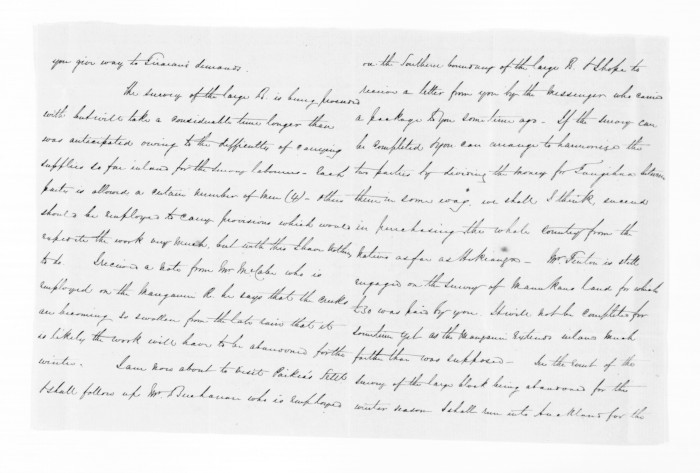 you give way to Tirarau's demands.
The survey of the large B. is being proceeded
with but will take a considerable time longer than
was anticipated owing to the difficulty of carrying
supplies so far inland for the survey labourers - Each
party is allowed a certain number of men (4) - others
should be employed to carry provisions which would
expedite the work very much, but with this I have nothing
to do. I received a note from Mr McCabe who is
employed on the Manganui R. he says that the creeks
are becoming so swollen from the late rain that it
is likely the work will have to be abandoned for the
winter. I am now about to visit Paikea's Settlt
& shall follow up Mr Buchanan who is employed
on the Southern boundary of the large B. & I hope to
receive a letter from you by the Messenger who carried
a package to you some time ago - If the survey can
be completed & you can arrange to harmonize the
two parties by dividing the money for Tangihua between
them in some way, we shall I think, succeed
in purchasing the whole country from the
natives as far as Hokianga - Mr Fenton is still
engaged on the survey of Manukau land for which
£30 was paid by you. It will not be completed for
sometime yet as the Manganui extends inland much
farther than was supposed - In the event of the
survey of the large block being abandoned for the
winter season I shall run into Auckland for the